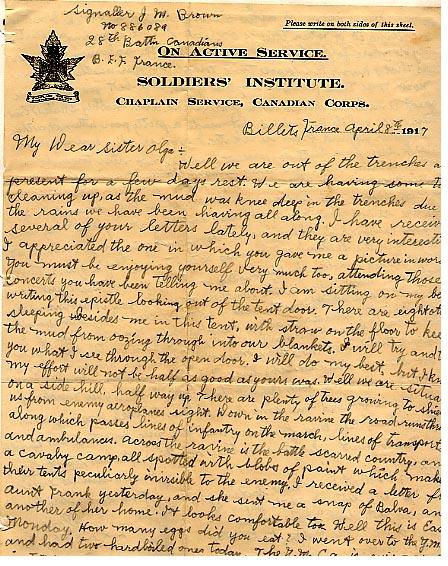 Signaller J. M. Brown
No 886089
28th Battn Canadians
B. E. F. France.
Please write on both sides of this sheet.
On Active Service.
SOLDIERS' INSTITUTE.
Chaplain Service, Canadian Corps.
Billets France April 8th 1917
My Dear sister Olga:-
Well we are out of the trenches a
present for a few days rest. We are having some t
cleaning up, as the mud was knee deep in the trenches due
the rains we have been having all along. I have receiv
several of your letters lately, and they are very interesti
I appreciated the one in which you gave me a picture in wor
You must be enjoying yourself very much too, attending those
concerts you have been telling me about. I am sitting on my be
writing this epistle looking out of the tent door. There are eight ot
sleeping besides me in this tent, with straw on the floor to kee
the mud from oozing through into our blankets. I will try and t
you what I see through the open door. I will do my best, but I k
my effort will not be half as good as yours was. Well we are situa
on a side hill, half way up. There are plenty of trees growing to shie
us from enemy aeroplanes sight. Down in the ravine the road runs thro
along which passes lines of infantry on the march, lines of transport
and ambulances. Across the ravine is the battle scarred country, an
a cavalry camp all spotted with blobs of paint which make
their tents peculiarly invisible to the enemy. I received a letter f
aunt Frank yesterday, and she sent me a snap of Balva, an
another of her home. It looks comfortable too. Well this is Ea
Monday. How many eggs did you eat? I went over to the Y.M
and had two hardboiled ones today. The Y. M. C. A. is